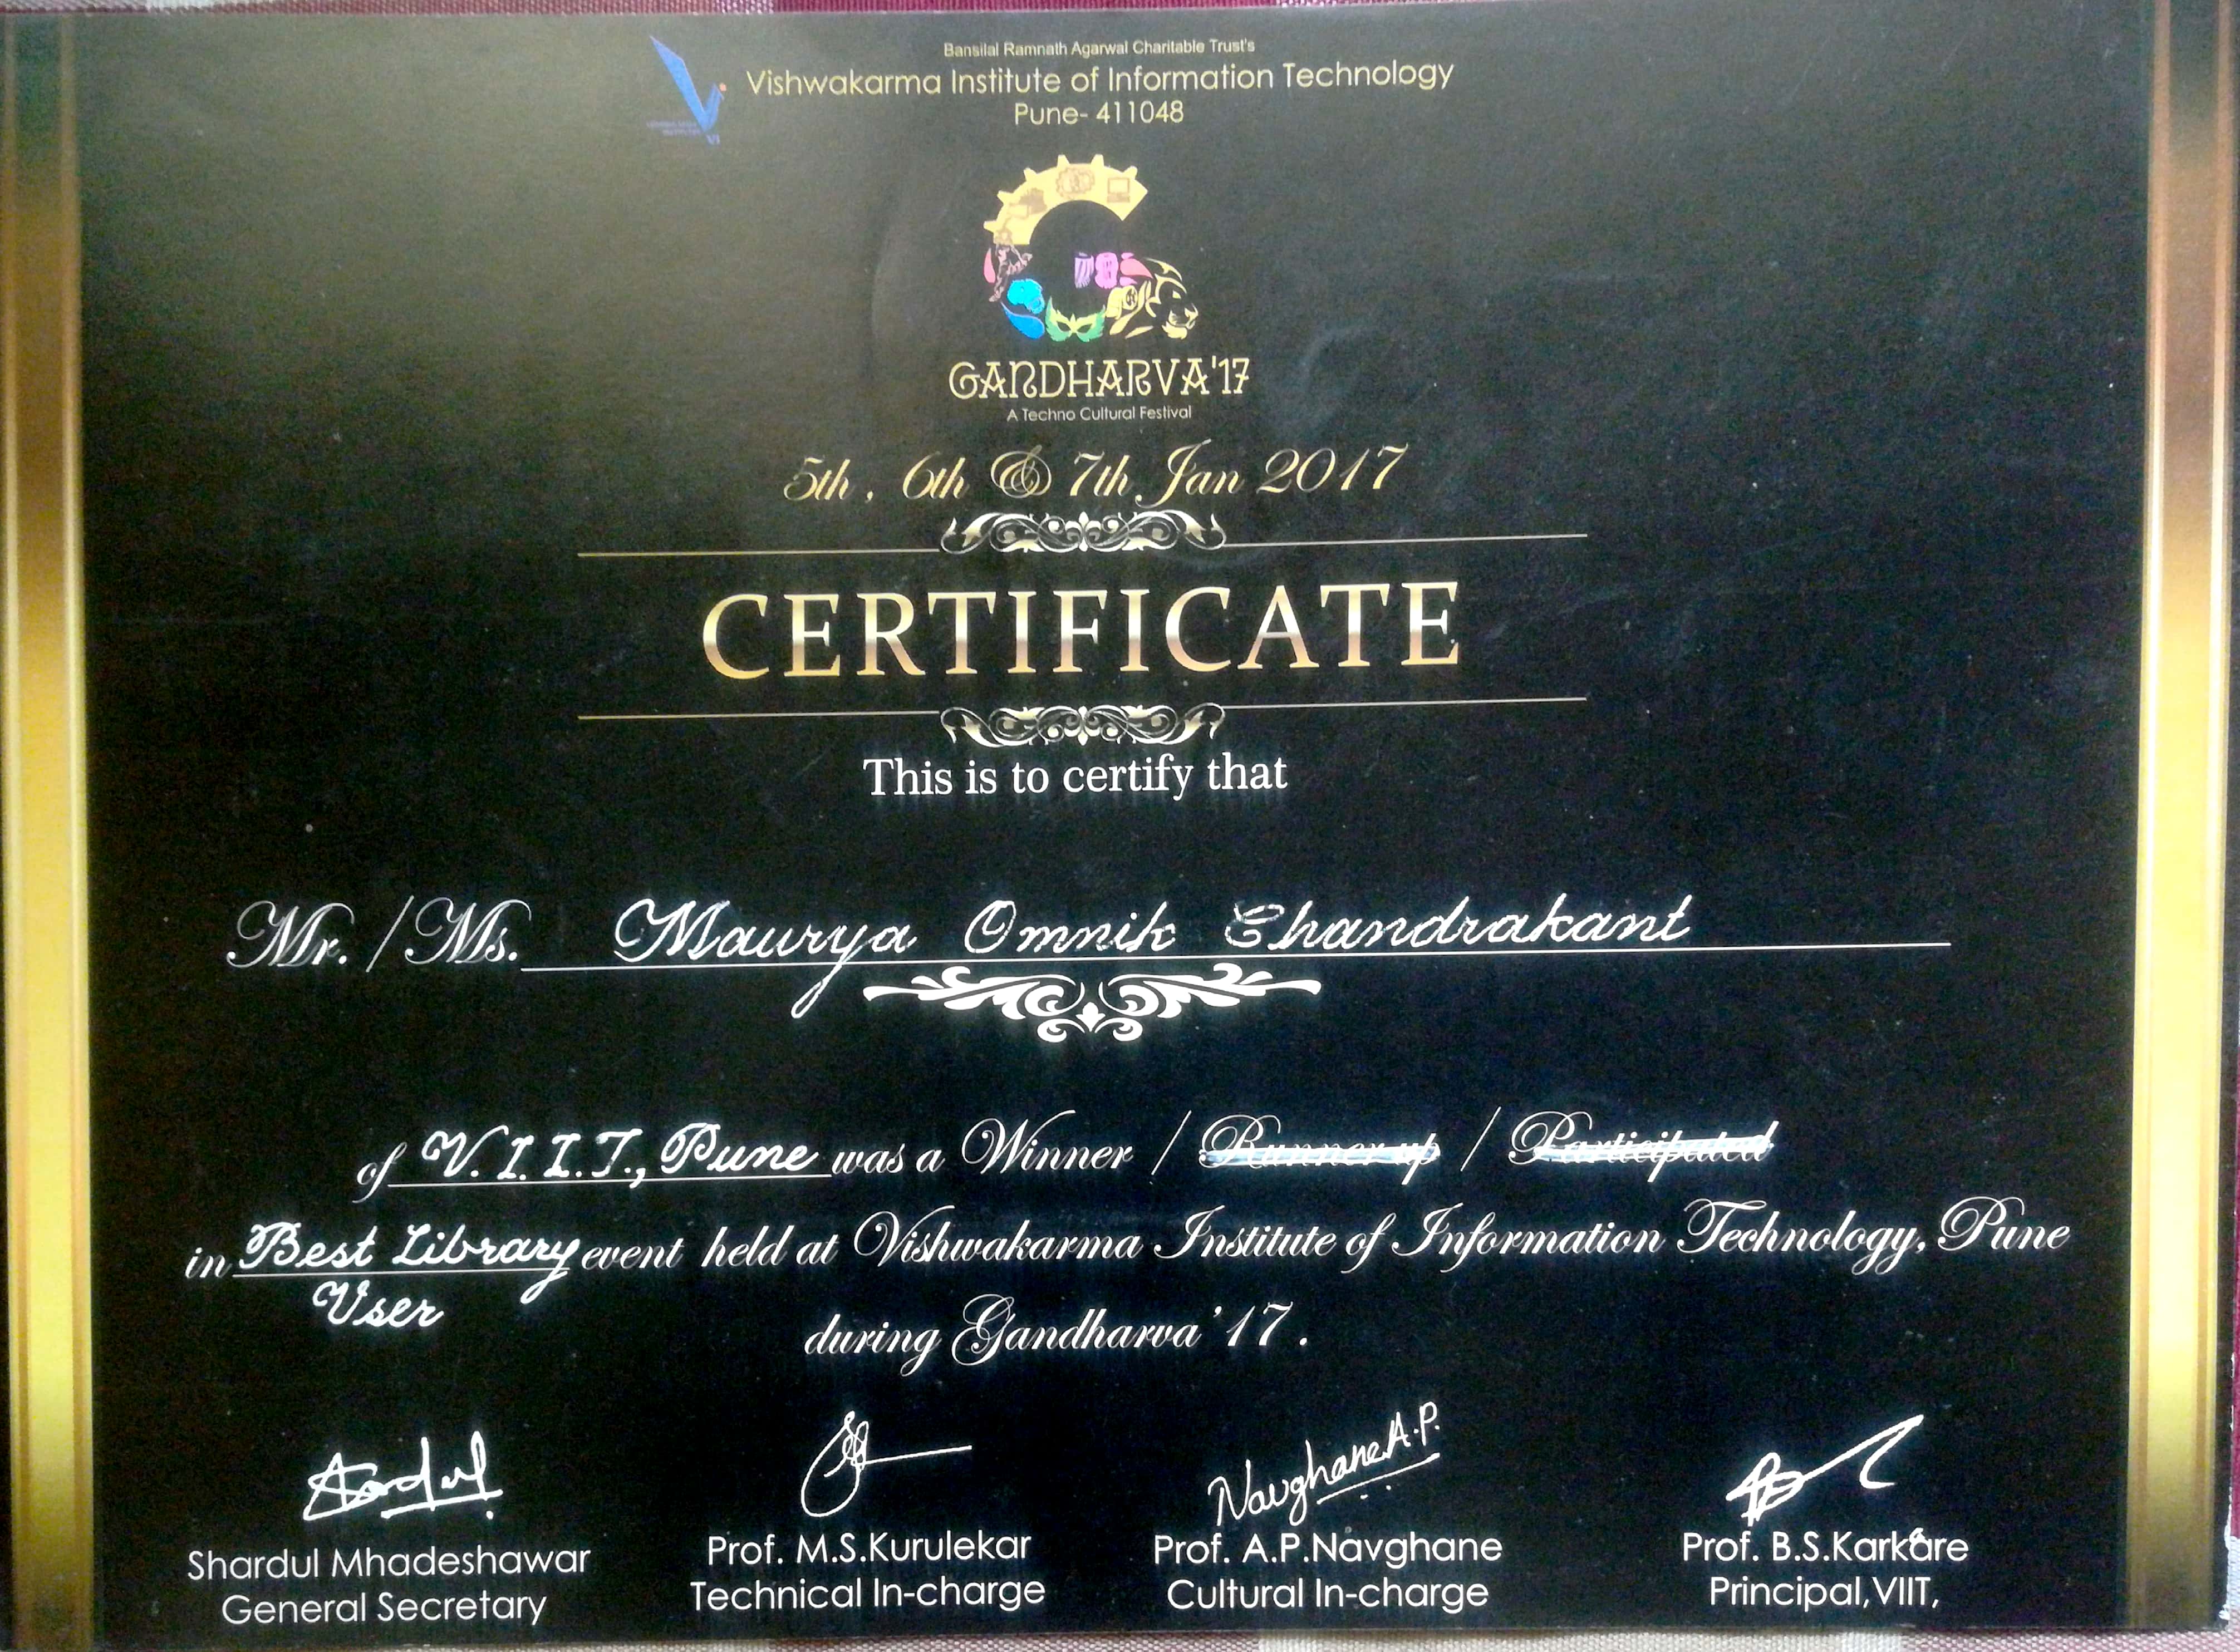 Bansilal Ramnath Agarwal Charitable Trust's
Vishwakarma Institute of Information Technology
Pune- 411048
GANDHARVA'17
A Techno Cultural Festival
5th, 6th & 7th Jan 2017
CERTIFICATE
This is to certify that
Mr. / Ms. Maurya Omnik Chandrakant
of V.I.I.T., Pune was a Winner / Runner up / Participated
in Best Library event held at Vishwakarma Institute of Information Technology, Pune
User
during Gandharva'17.
Navghane A.P.
Shardul Mhadeshawar
General Secretary
Prof. M.S.Kurulekar
Technical In-charge
Prof. A.P.Navghane
Cultural In-charge
Prof. B.S.Karkare
Principal,VIIT,